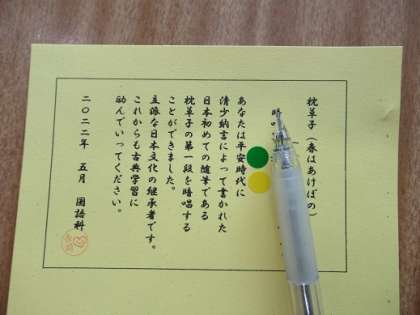 枕草子（春はあけぼの）
暗
あなたは平安時代に
清少納言によって書かれた
日本初めての随筆である
枕草子の第一段を暗唱する
ことができました。
立派な日本文化の継承者です。
これからも古典学習に
励んでいってください。
二〇二二年　五月　国語科